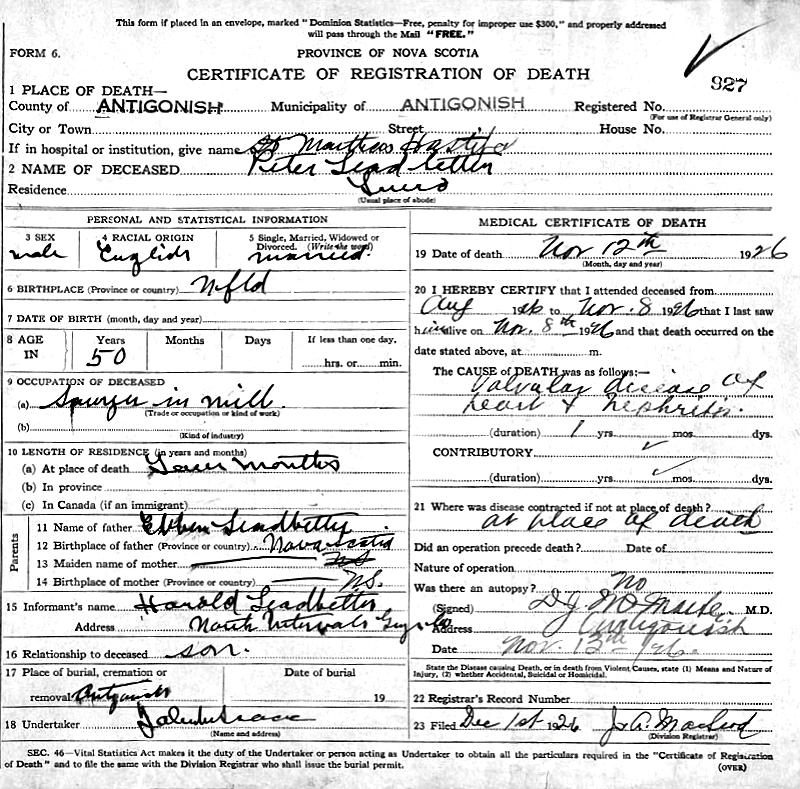 This form if placed in an envelope, marked "Dominion Statistics—Free, penalty for improper use $300," and properly addressed
will pass through the Mail "FREE."
FORM 6.
PROVINCE OF NOVA SCOTIA
CERTIFICATE OF REGISTRATION OF DEATH
927
1 PLACE OF DEATH—
County of ANTIGONISH Municipality of ANTIGONISH Registered No.
(For use of Registrar General only)
City or Town Street House No.
If in hospital or institution, give name St Marthas Hospital
2 NAME OF DECEASED Peter Leadbetter
Residence
(Usual place of abode)
PERSONAL AND STATISTICAL INFORMATION
3 SEX 4 RACIAL ORIGIN 5 Single, Married, Widowed or
Divorced. (Write the word)
male English married.
6 BIRTHPLACE (Province or country) Nfld
7 DATE OF BIRTH (month, day and year)
8 AGE IN Years Months Days If less than one day,
50 hrs. or min.
9 OCCUPATION OF DECEASED
(a) Sawyer in mill
(Trade or occupation or kind of work)
(b)
(Kind of industry)
10 LENGTH OF RESIDENCE (in years and months)
(a) At place of death months
(b) In province
(c) In Canada (if an immigrant)
Parents
11 Name of father Leadbetter
12 Birthplace of father (Province or country) Nova Scotia
13 Maiden name of mother NS
14 Birthplace of mother (Province or country) NS.
15 Informant's name Harold Leadbetter
Address North Intervale
16 Relationship to deceased son.
17 Place of burial, cremation or Date of burial
removal Antigonish 19
18 Undertaker
(Name and address)
MEDICAL CERTIFICATE OF DEATH
19 Date of death Nov 12th 1926
(Month, day and year)
20 I HEREBY CERTIFY that I attended deceased from
Aug 1926 to Nov. 8 1926 that I last saw
him alive on Nov. 8th 1926 and that death occurred on the
date stated above, at m.
The CAUSE OF DEATH was as follows:—
Valvular disease of
heart & nephritis.
(duration) 1 yrs. mos. dys.
CONTRIBUTORY
(duration) yrs. mos. dys.
21 Where was disease contracted if not at place of death?
at place of death
Did an operation precede death? Date of
Nature of operation
Was there an autopsy? no
(Signed) M.D.
Address Antigonish
Date Nov. 13th 1926
State the Disease causing Death, or in death from Violent Causes, state (1) Means and Nature of
Injury, (2) whether Accidental, Suicidal or Homicidal.
22 Registrar's Record Number
23 Filed Dec 1st 1926 J. A. MacLeod
(Division Registrar)
SEC. 46—Vital Statistics Act makes it the duty of the Undertaker or person acting as Undertaker to obtain all the particulars required in the "Certificate of Registration
of Death" and to file the same with the Division Registrar who shall issue the burial permit.
(OVER)